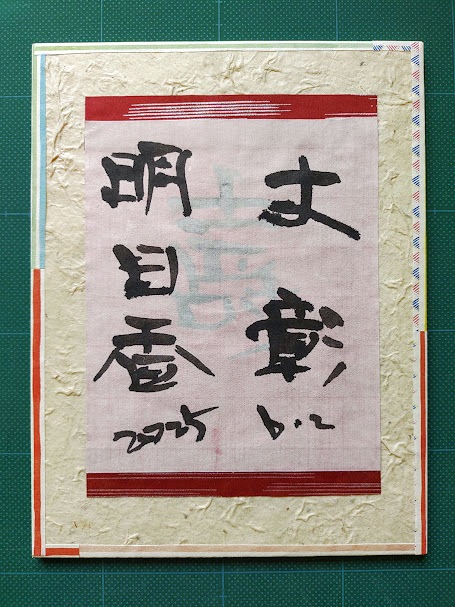 丈彰
6.2
明日香
2025